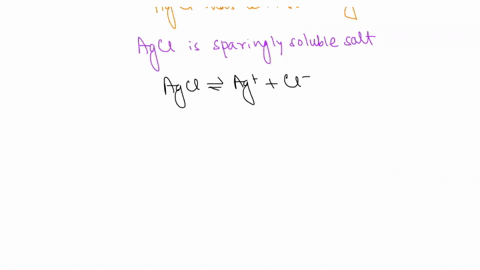 AgCl is sparingly soluble salt
AgCl ⇌ Ag⁺ + Cl⁻